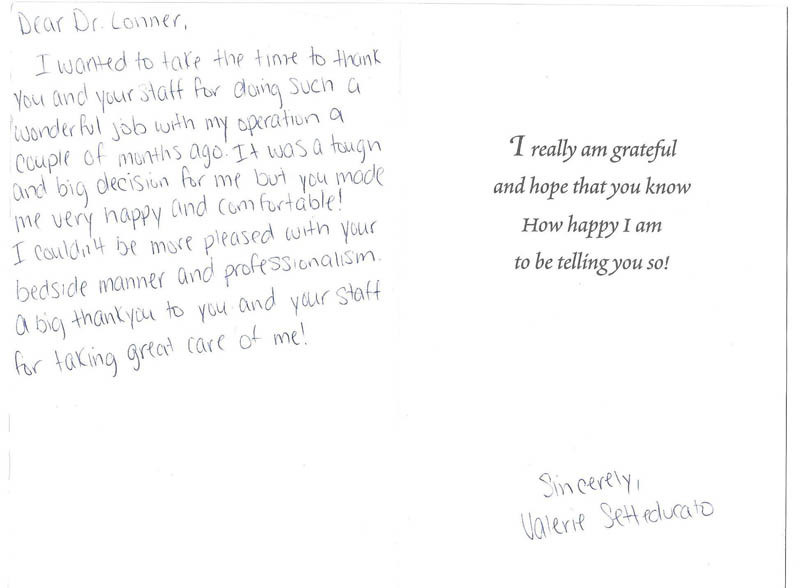 Dear Dr. Lonner,
I wanted to take the time to thank
you and your staff for doing such a
wonderful job with my operation a
couple of months ago. It was a tough
and big decision for me but you made
me very happy and comfortable!
I couldn't be more pleased with your
bedside manner and professionalism.
a big thankyou to you and your staff
for taking great care of me!
I really am grateful
and hope that you know
How happy I am
to be telling you so!
Sincerely,
Valerie Setteducato